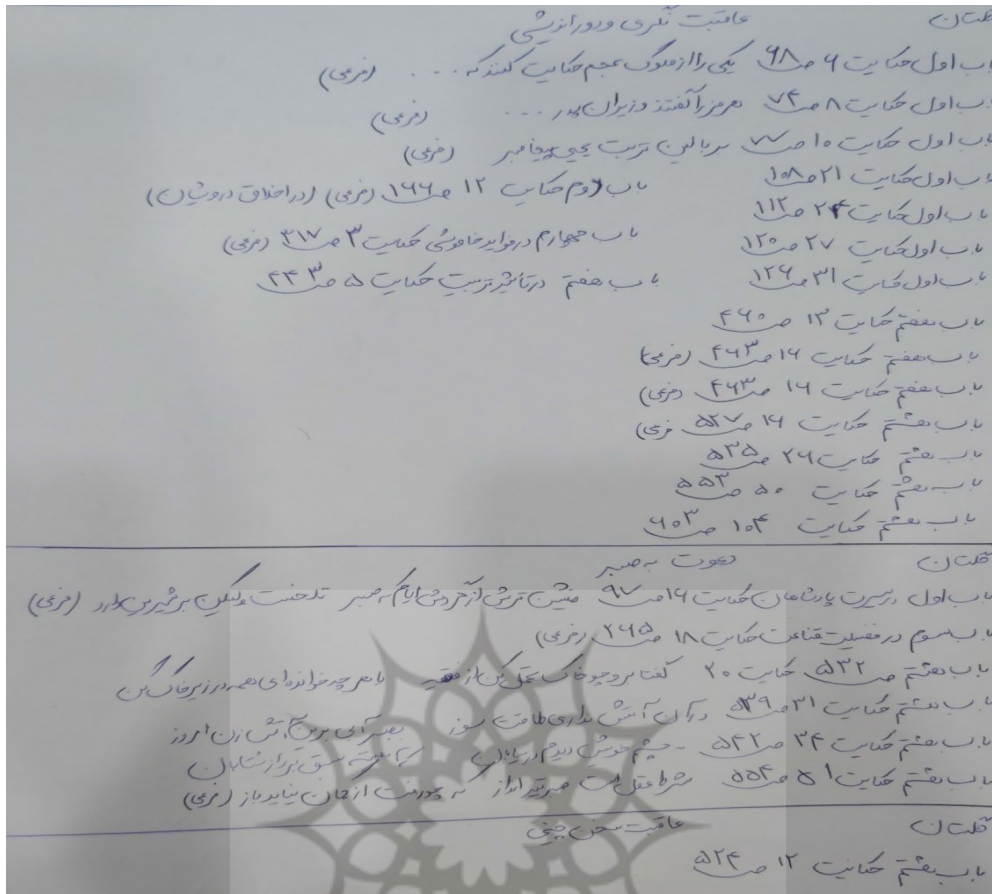 گلستان عاقبت نگری و دوراندیشی
باب اول حکایت ۶ ص ۶۸ یکی را از ملوک عجم حکایت کنند که ... (فرعی)
باب اول حکایت ۸ ص ۷۴ هرمز را گفتند وزیران پدر ... (فرعی)
باب اول حکایت ۱۰ ص ۷۷ بر بالین تربت یحیی پیغامبر (فرعی)
باب اول حکایت ۲۱ ص ۱۰۸ باب دوم حکایت ۱۲ ص ۱۶۶ (فرعی) (در اخلاق درویشان)
باب اول حکایت ۲۴ ص ۱۱۲
باب اول حکایت ۲۷ ص ۱۲۰ باب چهارم در فواید خاموشی حکایت ۳ ص ۳۱۷ (فرعی)
باب اول حکایت ۳۱ ص ۱۲۶ باب هفتم در تأثیر تربیت حکایت ۵ ص ۴۴۳
باب هفتم حکایت ۱۳ ص ۴۶۰
باب هفتم حکایت ۱۶ ص ۴۶۳ (فرعی)
باب هفتم حکایت ۱۶ ص ۴۶۳ (فرعی)
باب هشتم حکایت ۱۶ ص ۵۲۷ فرعی)
باب هشتم حکایت ۲۶ ص ۵۳۵
باب هشتم حکایت ۵۰ ص ۵۵۳
باب هشتم حکایت ۱۰۴ ص ۶۰۳
گلستان دعوت به صبر
باب اول در سیرت پادشاهان حکایت ۱۶ ص ۹۷ منشین ترش از گردش ایام که صبر تلخست ولیکن بر شیرین دارد (فرعی)
باب سوم در فضیلت قناعت حکایت ۱۸ ص ۲۶۵ (فرعی)
باب هشتم ص ۵۳۲ حکایت ۲۰ گفتا برو چو خاک تحمل کن از فقیه یا هر چه خوانده‌ای همه در زیر خاک کن
باب هشتم حکایت ۳۱ ص ۵۳۹ در آن آتش نداری طاقت سوز بصبر آبی برین آتش زن امروز
باب هشتم حکایت ۳۴ ص ۵۴۲ به چشم خویش دیدم در بیابان که آهسته سبق برد از شتابان
باب هشتم حکایت ۵۱ ص ۵۵۴ شرط عقل است صبر تیرانداز که چو رفت از کمان نیاید باز (فرعی)
گلستان عاقبت سخن چینی
باب هشتم حکایت ۱۲ ص ۵۲۴